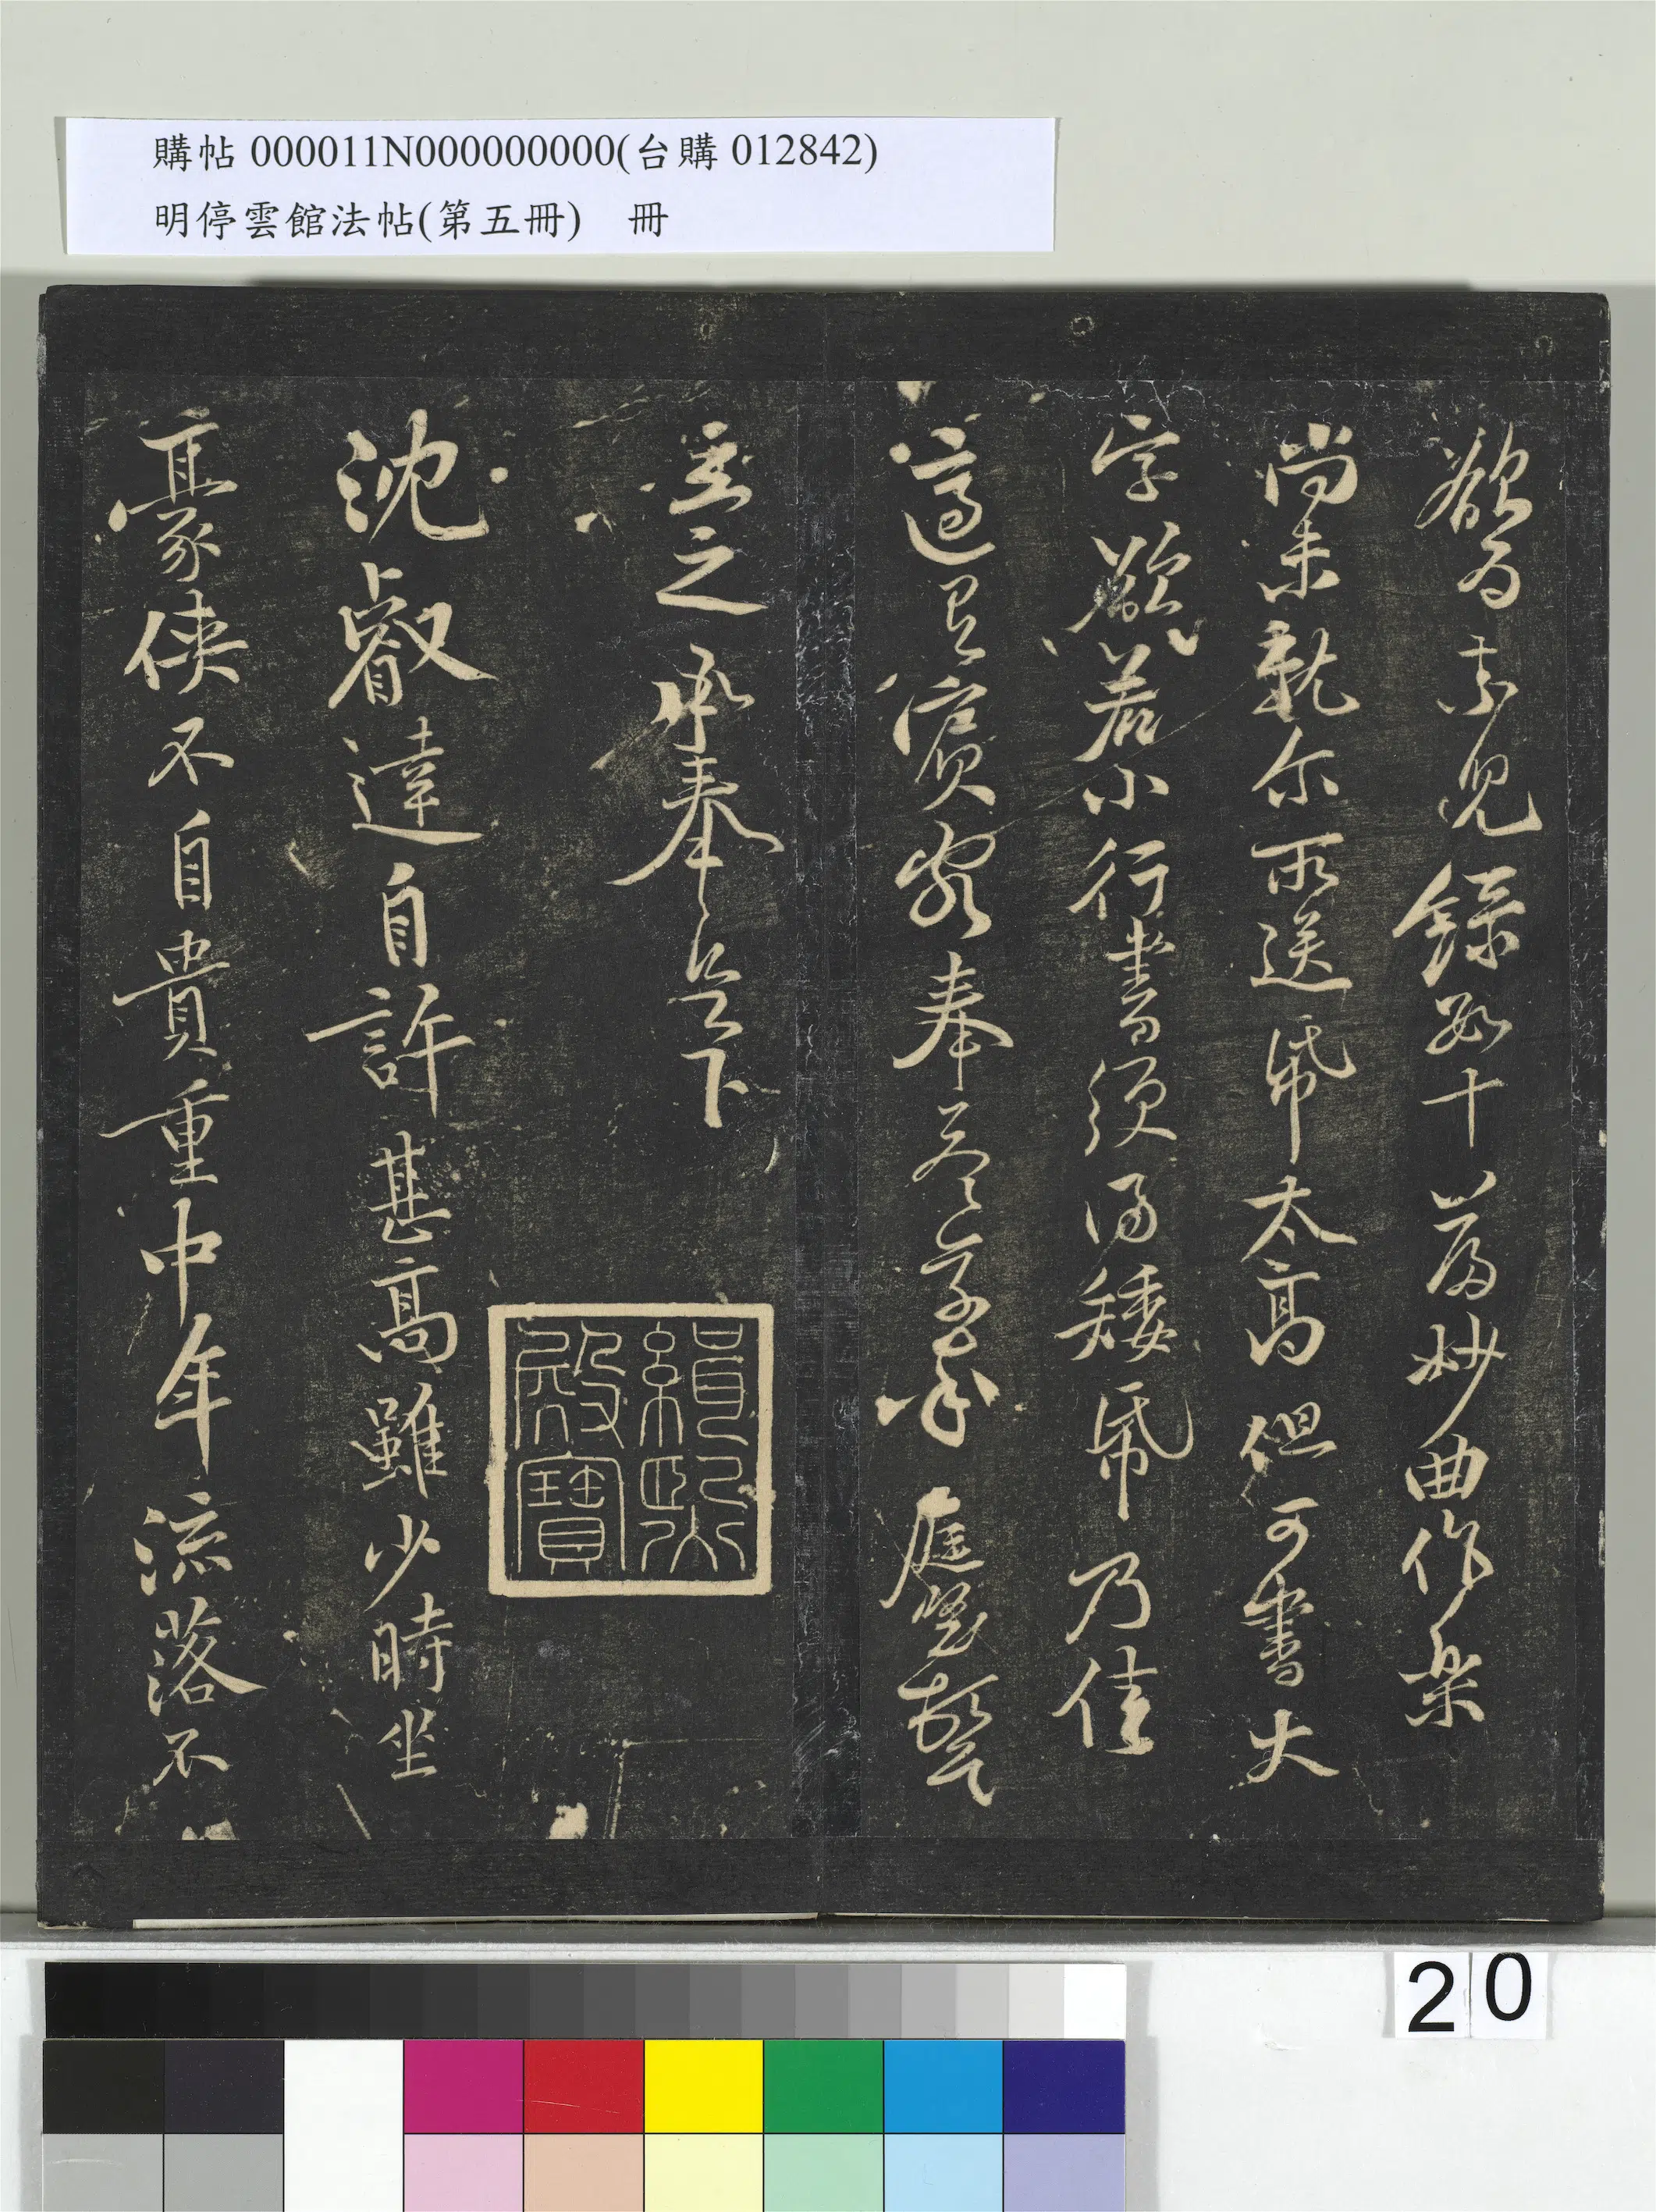 購帖 000011N000000000(台購 012842)
明停雲館法帖(第五冊) 冊
欲為素兒錄數十篇妙曲作樂
尚未就尔所送帋太高但可書大
字欲若小行書須得矮帋乃佳
適有賓客奉答草率庭堅頓首
立之承奉足下
緝熙
殿寶
沈叡達自許甚高雖少時坐
豪俠不自貴重中年流落不
20